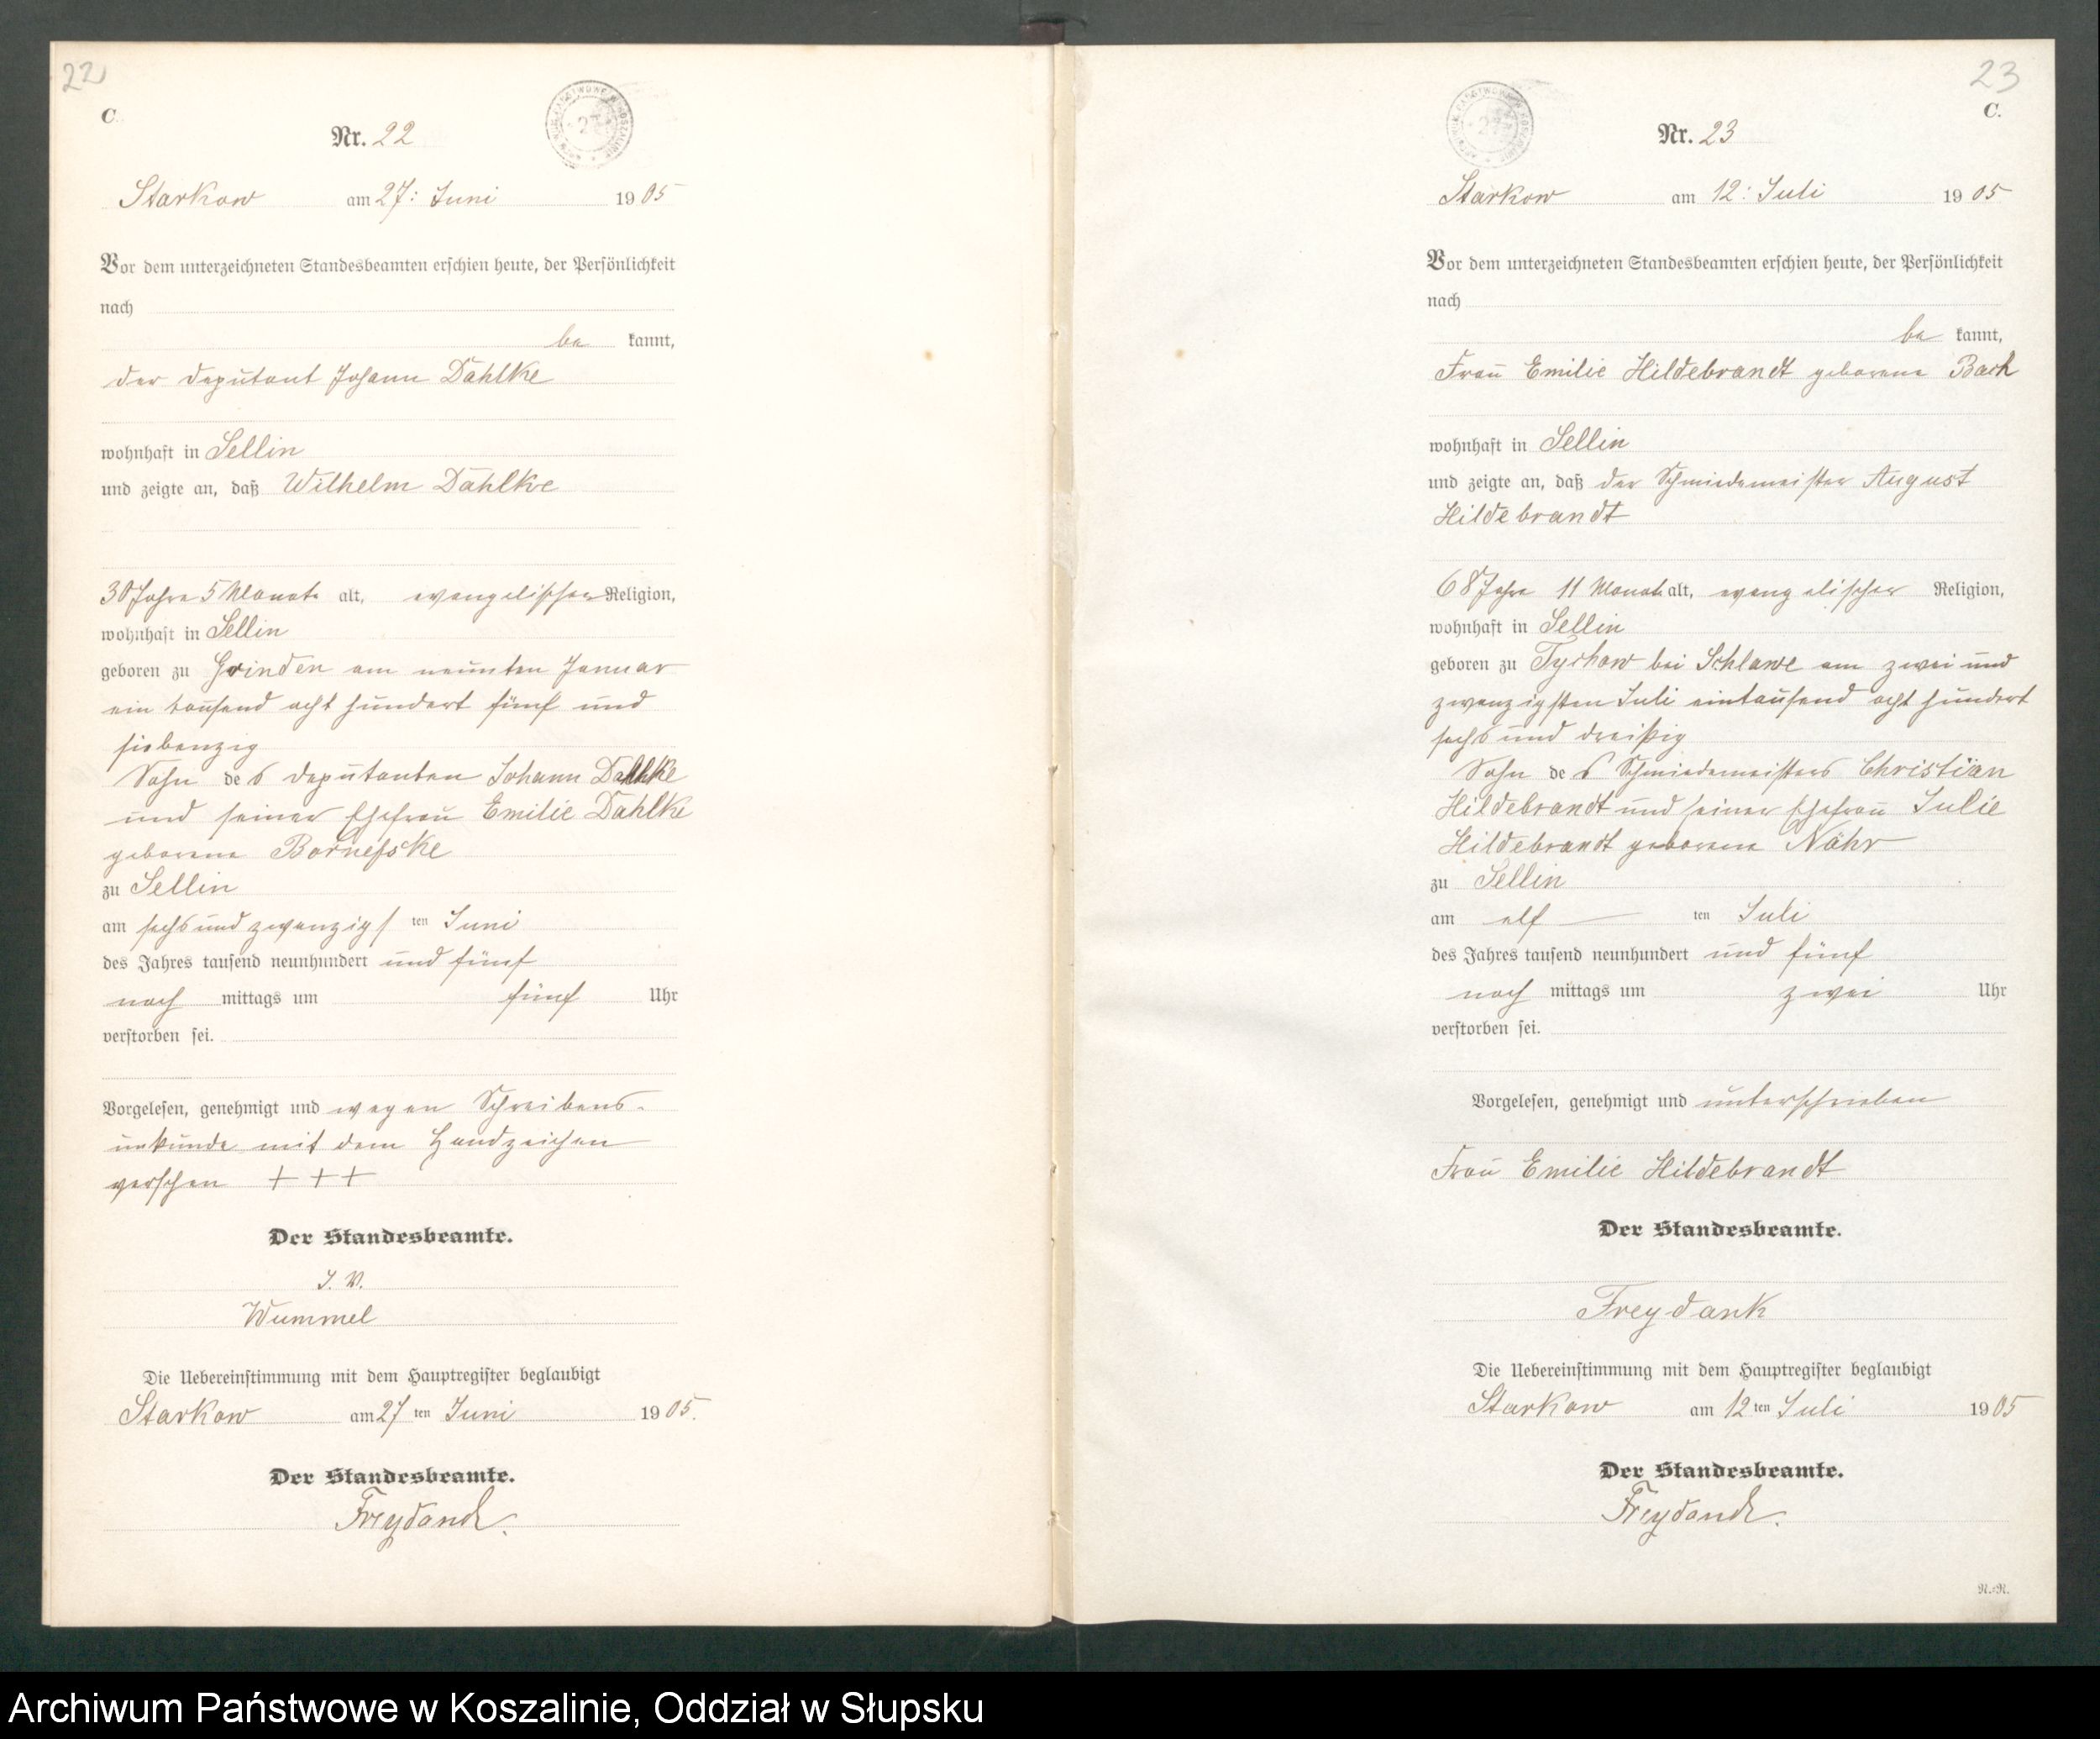 22
C.
Nr. 22
Starkow am 27: Juni 1905
Vor dem unterzeichneten Standesbeamten erschien heute, der Persönlichkeit
nach
be kannt,
der Deputant Johann Dahlke
wohnhaft in Sellin
und zeigte an, daß Wilhelm Dahlke
30 Jahre 5 Monate alt, evangelischer Religion,
wohnhaft in Sellin
geboren zu Grinden am neunten Januar
ein tausend acht hundert fünf und
siebenzig
Sohn des Deputanten Johann Dahlke
und seiner Ehefrau Emilie Dahlke
geborene
zu Sellin
am sechsundzwanzigsten Juni
des Jahres tausend neunhundert und fünf
nach mittags um fünf Uhr
verstorben sei.
Vorgelesen, genehmigt und wegen Schreibens-
unkunde mit dem Handzeichen
versehen + + +
Der Standesbeamte.
I. V.
Wummel
Die Uebereinstimmung mit dem Hauptregister beglaubigt
Starkow am 27ten Juni 1905.
Der Standesbeamte.
Freydank.
23
C.
Nr. 23
Starkow am 12: Juli 1905
Vor dem unterzeichneten Standesbeamten erschien heute, der Persönlichkeit
nach
be kannt,
Frau Emilie Hildebrandt geborene Bach
wohnhaft in Sellin
und zeigte an, daß der Schmiedemeister August
Hildebrandt
68 Jahre 11 Monate alt, evangelischer Religion,
wohnhaft in Sellin
geboren zu Tychow bei Schlawe am zwei und
zwanzigsten Juli eintausend acht hundert
sechs und dreißig
Sohn des Schmiedemeisters Christian
Hildebrandt und seiner Ehefrau Julie
Hildebrandt geborene Nähr
zu Sellin
am elf ten Juli
des Jahres tausend neunhundert und fünf
nach mittags um zwei Uhr
verstorben sei.
Vorgelesen, genehmigt und unterschrieben
Frau Emilie Hildebrandt
Der Standesbeamte.
Freydank
Die Uebereinstimmung mit dem Hauptregister beglaubigt
Starkow am 12ten Juli 1905
Der Standesbeamte.
Freydank.
Archiwum Państwowe w Koszalinie, Oddział w Słupsku